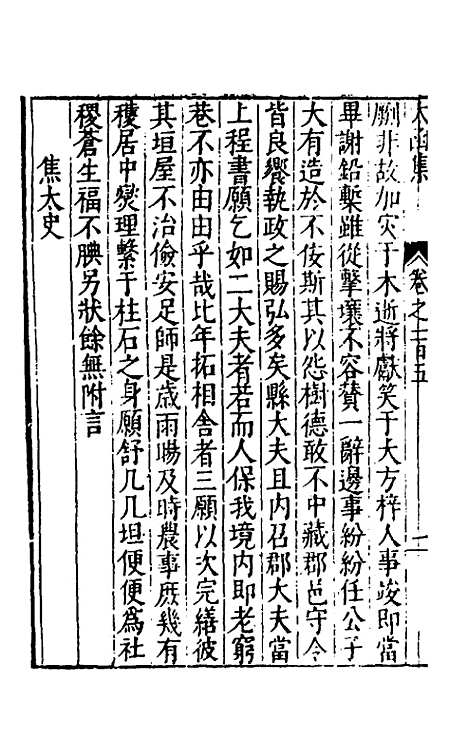 太函集
卷之一百五
二
劂非故加灾于木逝將獻笑于大方梓人事竣即當
畢謝鉛槧雖從擊壤不容贊一辭邊事紛紛任公子
大有造於不佞斯其以怨樹德敢不中藏郡邑守令
皆良饗執政之賜弘多矣縣大夫且内召郡大夫當
上程書願乞如二大夫者若而人保我境内即老窮
巷不亦由由乎哉比年拓相舎者三願以次完繕彼
其垣屋不治儉安足師是歳雨暘及時農事庶幾有
穫居中爕理繫于柱石之身願舒几几坦便便爲社
稷蒼生福不腆另狀餘無附言
焦太史